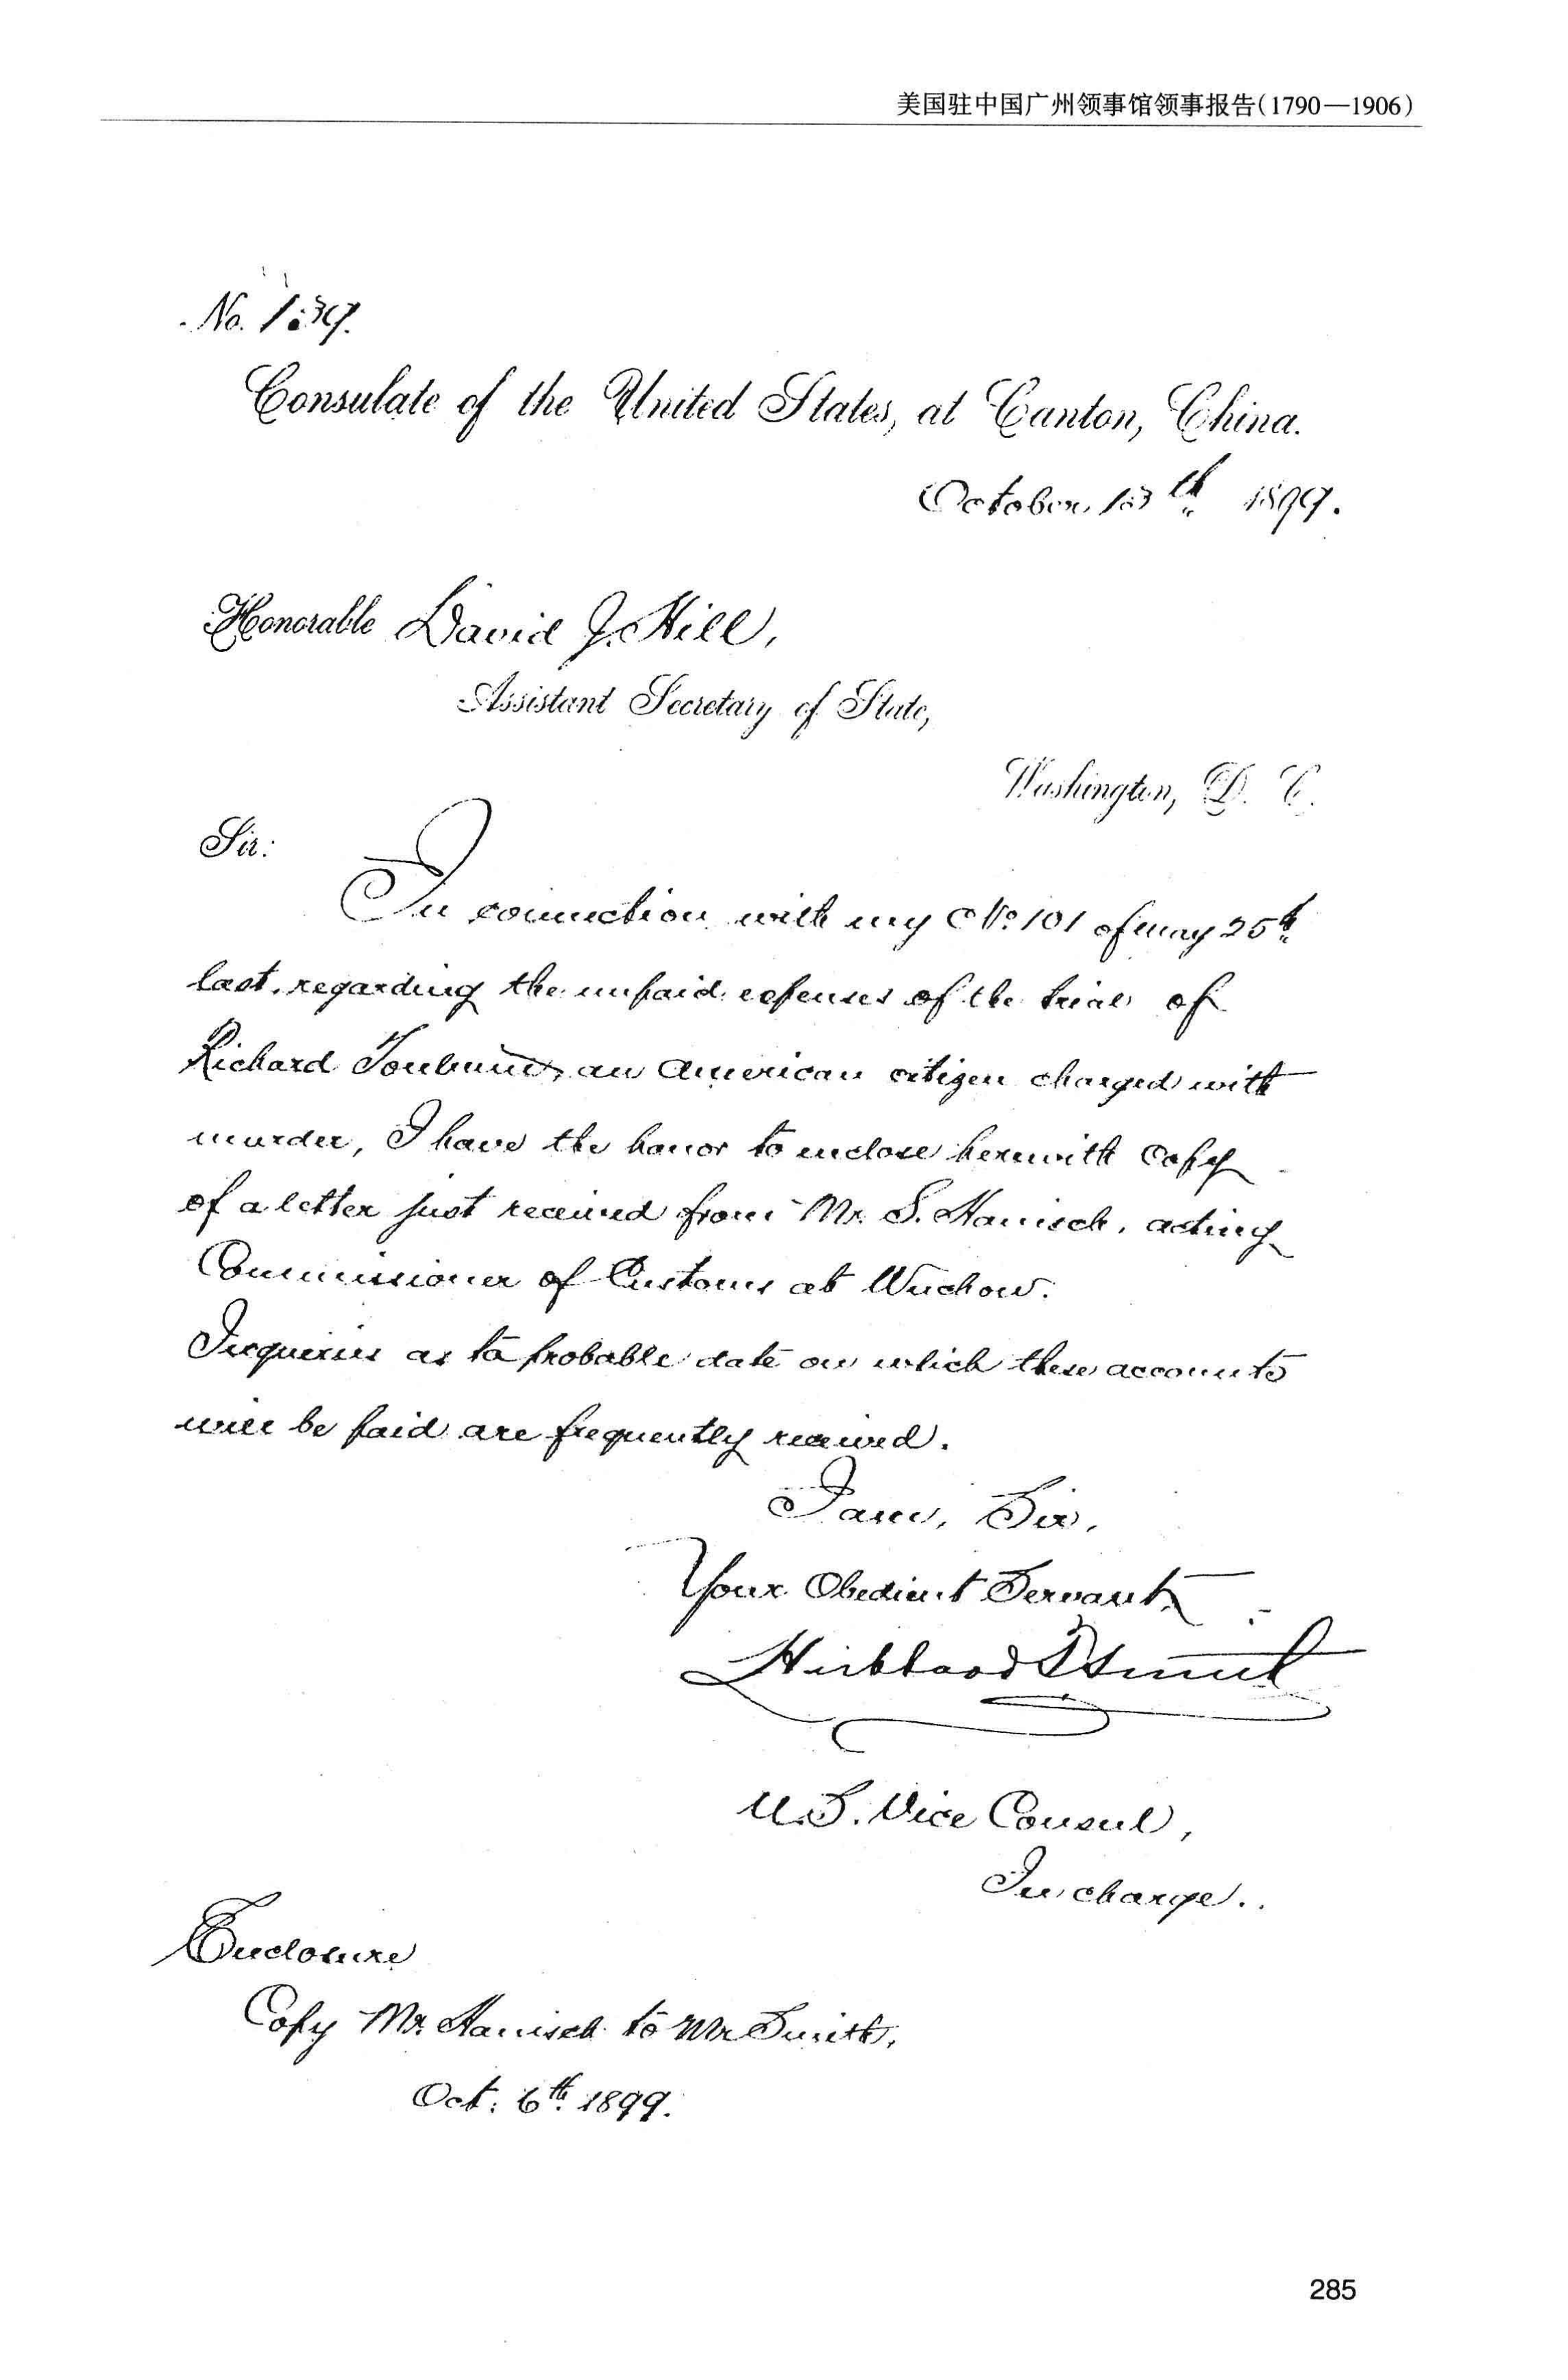 美国驻中国广州领事馆领事报告(1790—1906)
No. 139.
Consulate of the United States, at Canton, China.
October 13th 1899.
Honorable David J. Hill,
Assistant Secretary of State,
Washington, D. C.
Sir:
In connection with my No 101 of may 25th
last, regarding the unpaid expenses of the trial of
Richard an American citizen charged with
murder, I have the honor to enclose herewith copy
of a letter just received from Mr. S. Hanisch, acting
Commissioner of Customs at Wuchow.
Inquiries as to probable date on which these accounts
will be paid are frequently received.
I am, Sir,
Your Obedient Servant,
Smith
U.S. Vice Consul,
In charge.
Enclosure
Copy Mr. Hanisch to Mr Smith,
Oct. 6th 1899.
285